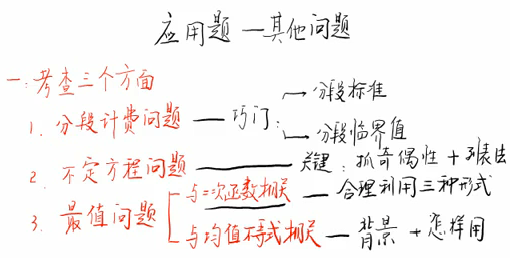 应用题—其他问题
一:考查三个方面
1. 分段计费问题 — 巧门: → 分段标准
→ 分段临界值
2. 不定方程问题 — 关键: 抓奇偶性+列表法
3. 最值问题 与二次函数相关 — 合理利用三种形式
与均值不等式相关 — 背景+怎样用